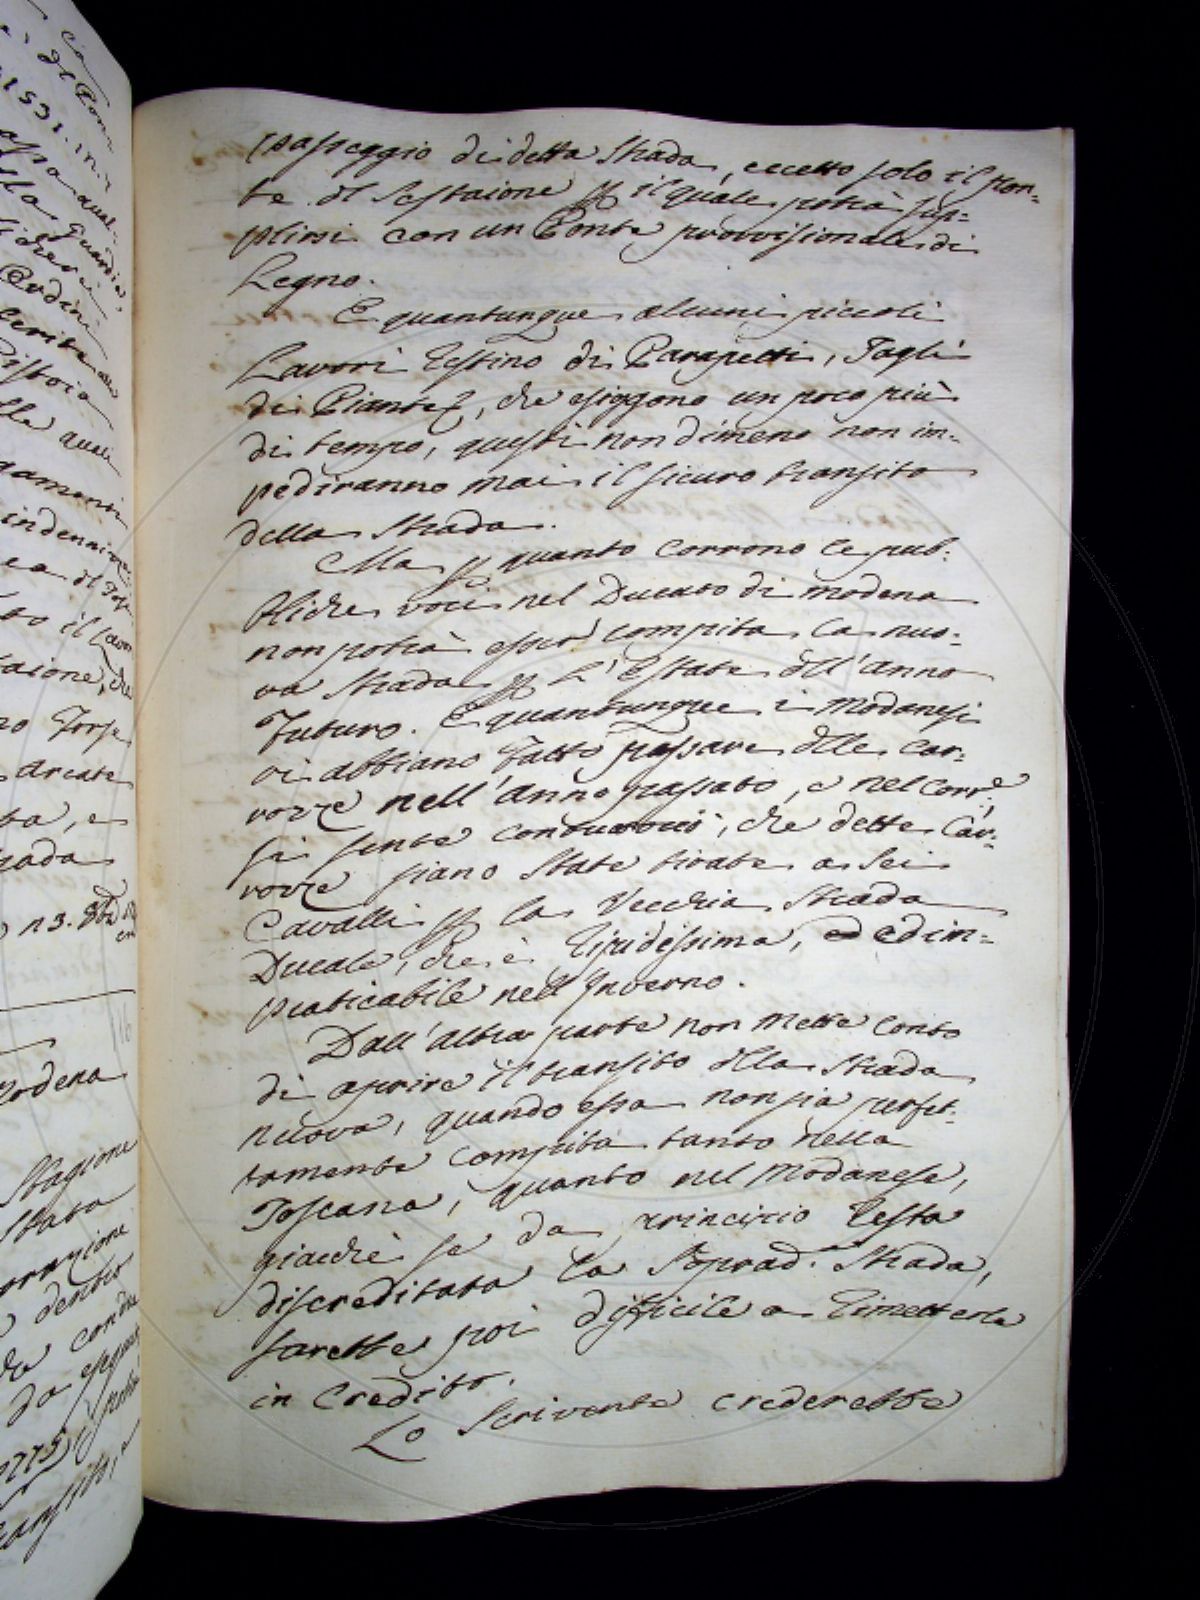 passeggio di detta Strada, eccetto solo il Pon-
te dl Sestaione p il quale potrà sup-
plirsi con un Ponte provvisionale di
Legno.
E quantunque alcuni piccoli
Lavori restino di Parapetti, Tagli
di Piante, che esiggono un poco più
di tempo, questi nondimeno non im-
pediranno mai il sicuro transito
della Strada.
Ma p quanto corrono le pub-
bliche voci nel Ducato di Modena
non potrà esser compita la nuo-
va Strada p l'Estate dll'anno
futuro. E quantunque i Modanesi
vi abbiano fatto passare dlle Car-
rozze nell'anno passato, e nel corre.
si sente, che dette Car-
rozze siano state tirate a sei
Cavalli p la Vecchia Strada
Ducale, che è ripidissima, ed im-
praticabile nell'Inverno.
Dall'altra parte non mette conto
di aprire il transito dlla Strada
nuova, quando essa non sia perfet-
tamente compita tanto nella
Toscana, quanto nel Modanese,
giacchè se da principio resta
discreditata la Soprad.a Strada,
sarebbe poi difficile a rimetterla
in credito.
Lo Scrivente crederebbe
1531. in
Guardia,
Ordini
Pistoia
alle quali
il
che
Forse
Arcate
n 3.
Modena
Stagione
Stata
dentro
da
1775
transito,